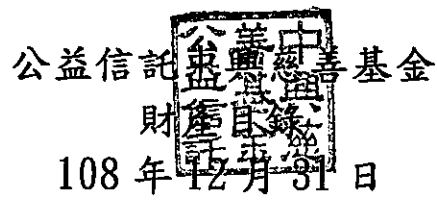 公益信託中興慈善基金
財產目錄
108 年 12 月 31 日